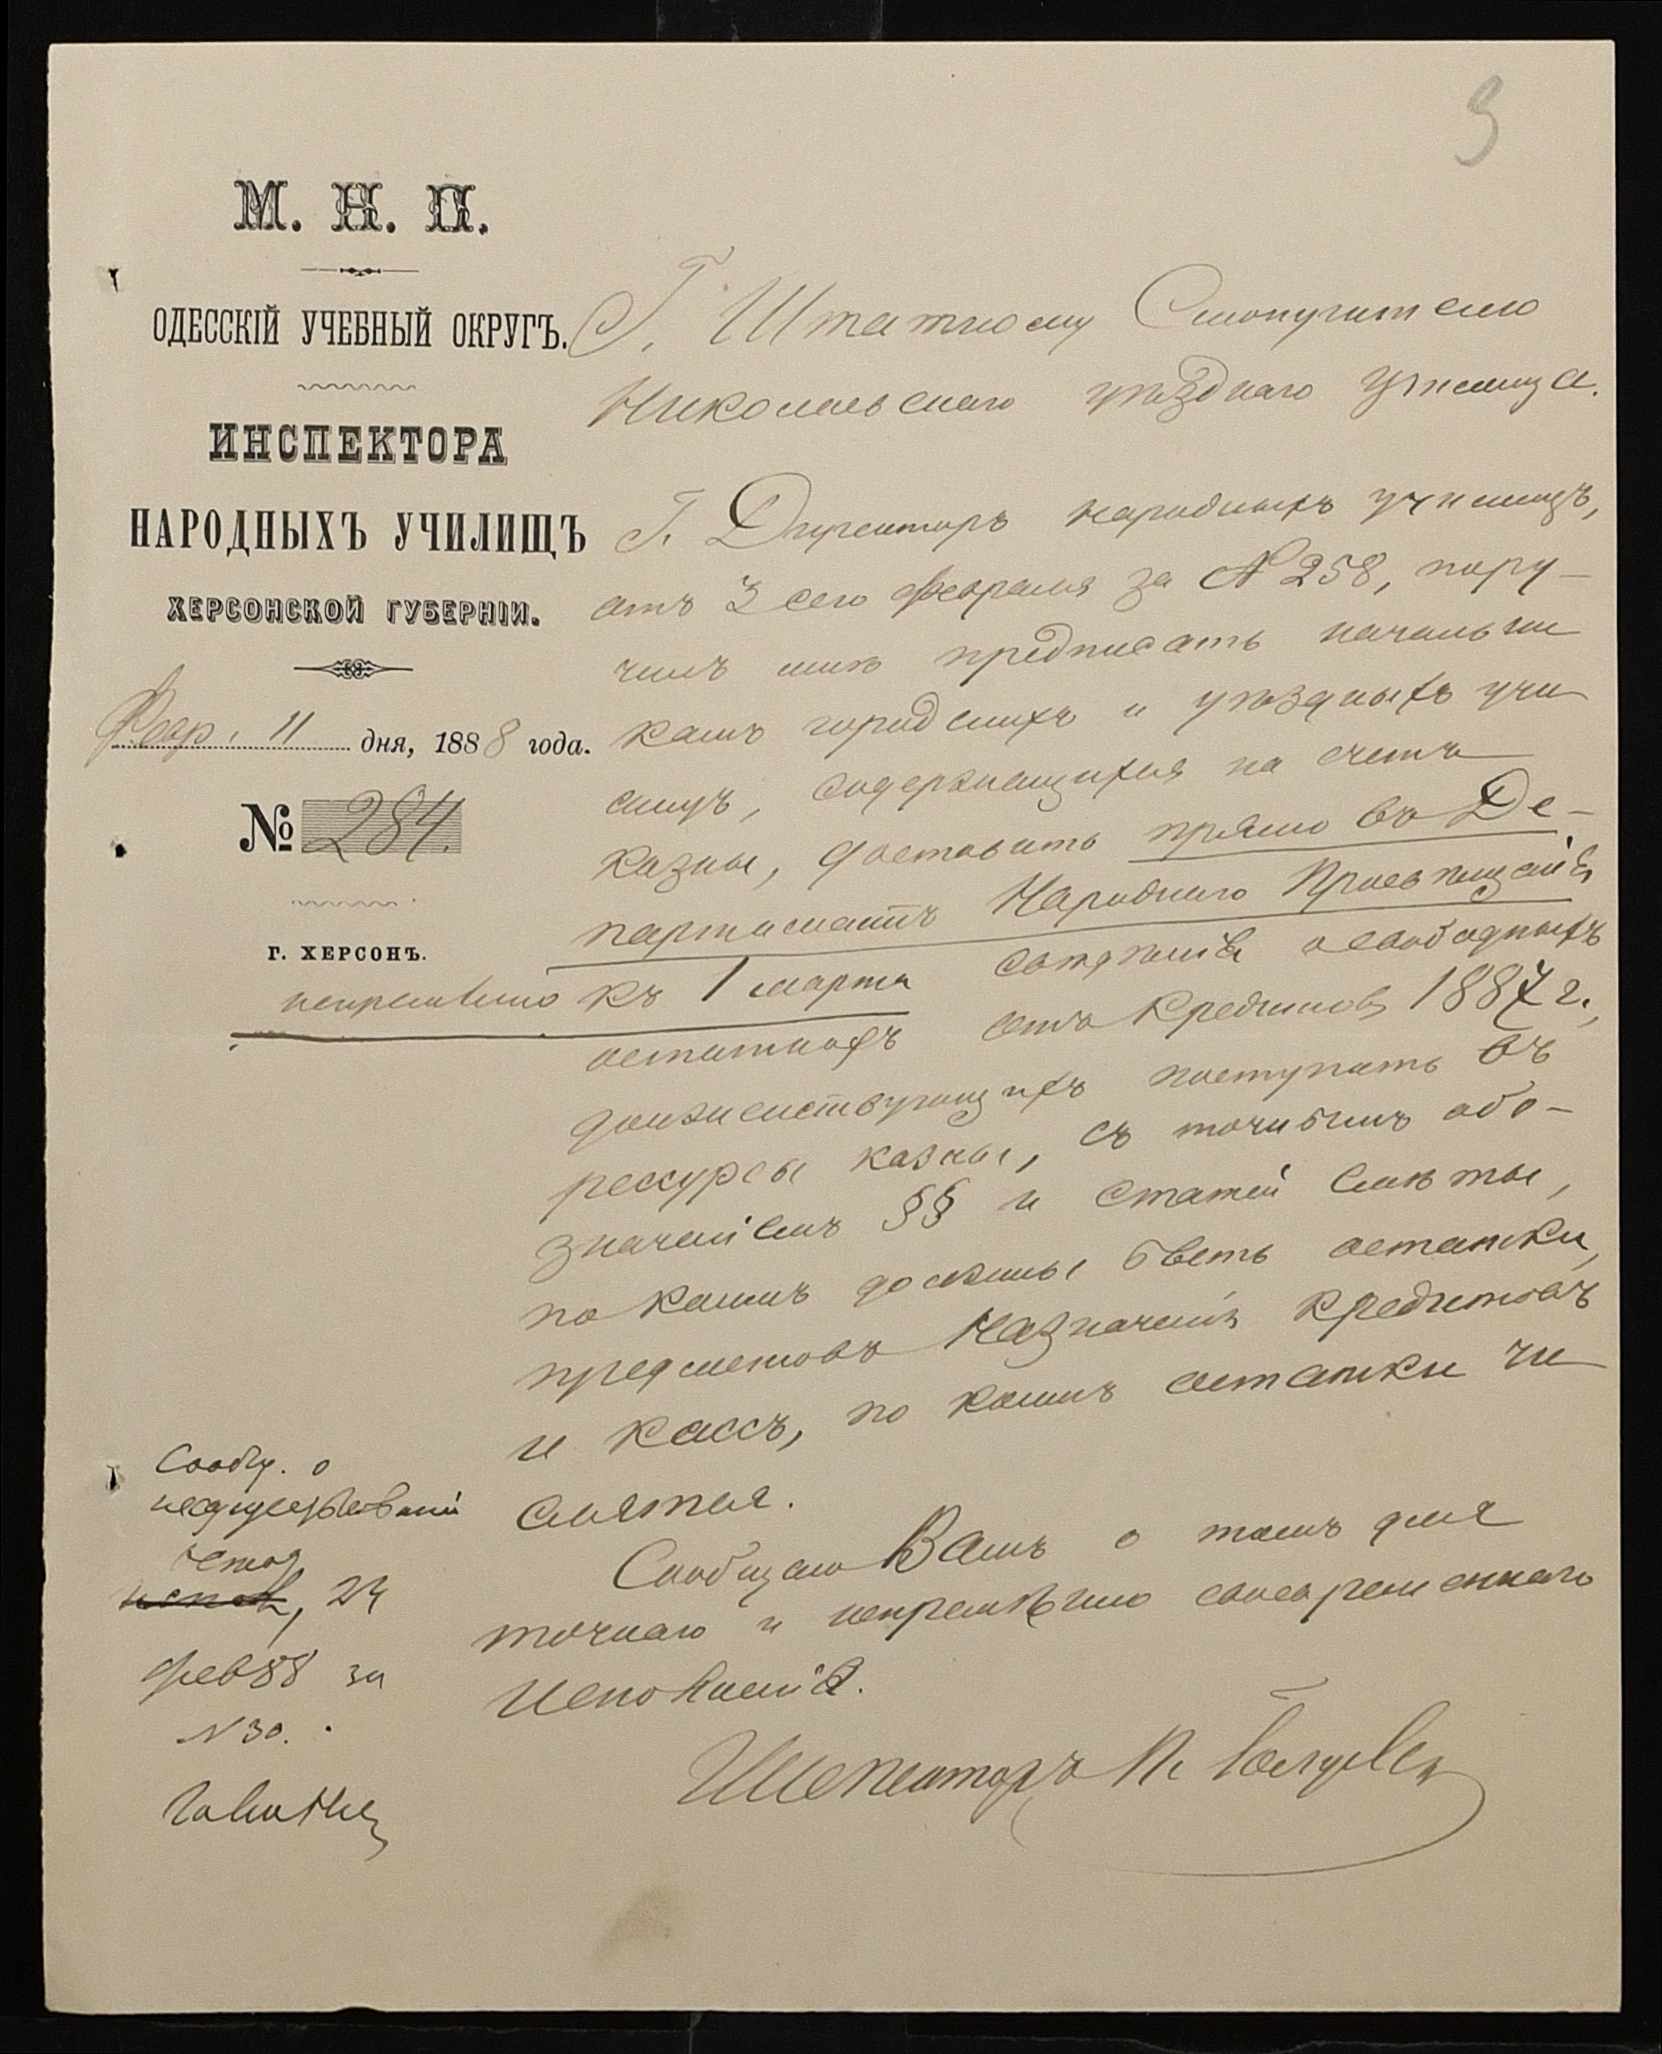 М. Н. П.
ОДЕССКІЙ УЧЕБНЫЙ ОКРУГЪ.
ИНСПЕКТОРА
НАРОДНЫХЪ УЧИЛИЩЪ
ХЕРСОНСКОЙ ГУБЕРНІИ.
Февр. 11 дня, 1888 года.
№ 284.
Г. ХЕРСОНЪ.
Г. Штатному Смотрителю
Николаевскаго уѣзднаго училища.
Г. Директоръ народныхъ училищъ,
отъ 3 сего февраля за № 258, пору-
чилъ мнѣ предписать начальни
камъ городскихъ и уѣздныхъ учи
лищъ, содержащихся на счетъ
казны, доставить прямо въ Де-
партаментъ Народнаго Просвѣщенія
непремѣнно къ 1 марта свѣдѣнія о свободныхъ
остаткахъ отъ кредитовъ 1887 г.,
долженствующихъ поступить въ
рессурсы казны, съ точнымъ обо-
значеніемъ §§ и статей смѣты,
по коимъ должны быть остатки,
предметовъ назначенія кредитовъ
и кассъ, по коимъ остатки чи
слятся.
Сообщаю Вамъ о томъ для
точнаго и непремѣнно своевременнаго
исполненія.
Инспекторъ П.
Сообщ. о
24
фев 88 за
N 30.